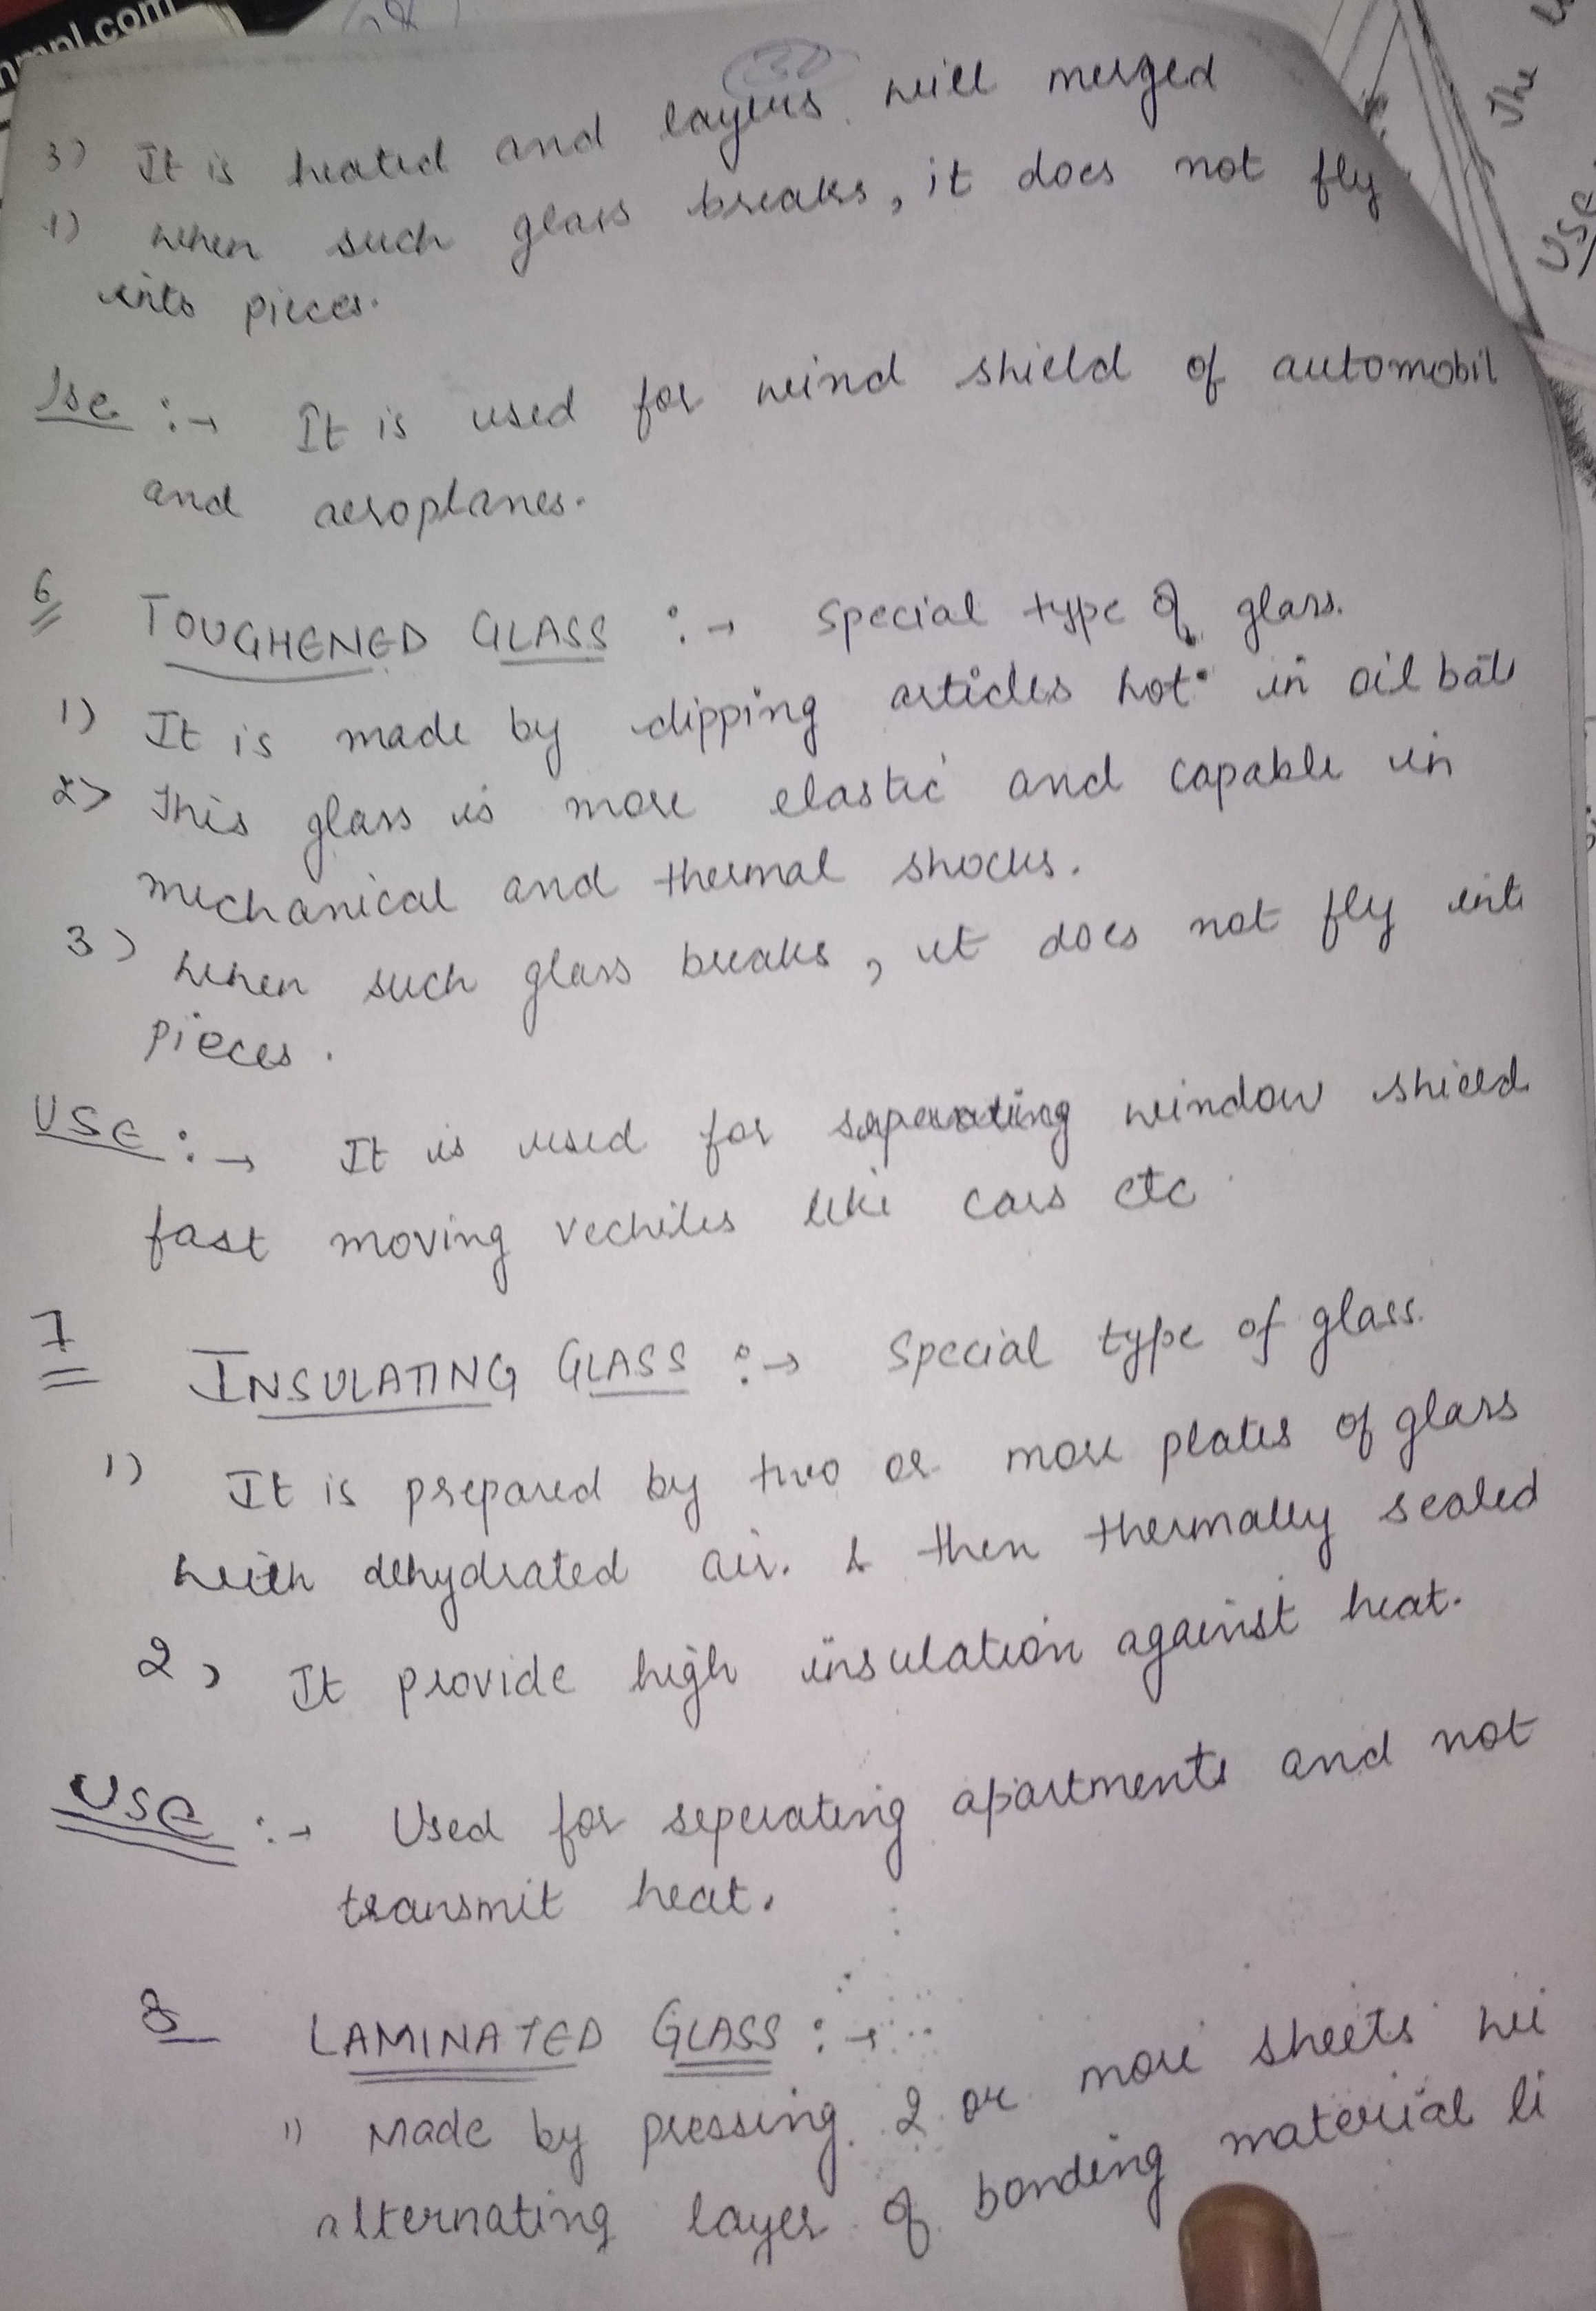 hmpl.com
30
3) It is heated and layers will merged
4) when such glass breaks, it does not fly
into pieces.
Use :→ It is used for wind shield of automobil
and aeroplanes.
6 TOUGHENED GLASS :→ Special type of glass.
1) It is made by dipping articles hot in oil bath
2) This glass is more elastic and capable in
mechanical and thermal shocks.
3) when such glass breaks, it does not fly into
pieces.
USE :→ It is used for window shield
fast moving vechiles like cars etc
7 INSULATING GLASS :→ Special type of glass.
1) It is prepared by two or more plates of glass
with dehydrated air. & then thermally sealed
2) It provide high insulation against heat.
USe :→ Used for seperating apartments and not
transmit heat.
8 LAMINATED GLASS :→
1) Made by pressing 2 or more sheets wi
alternating layer of bonding material li
USe